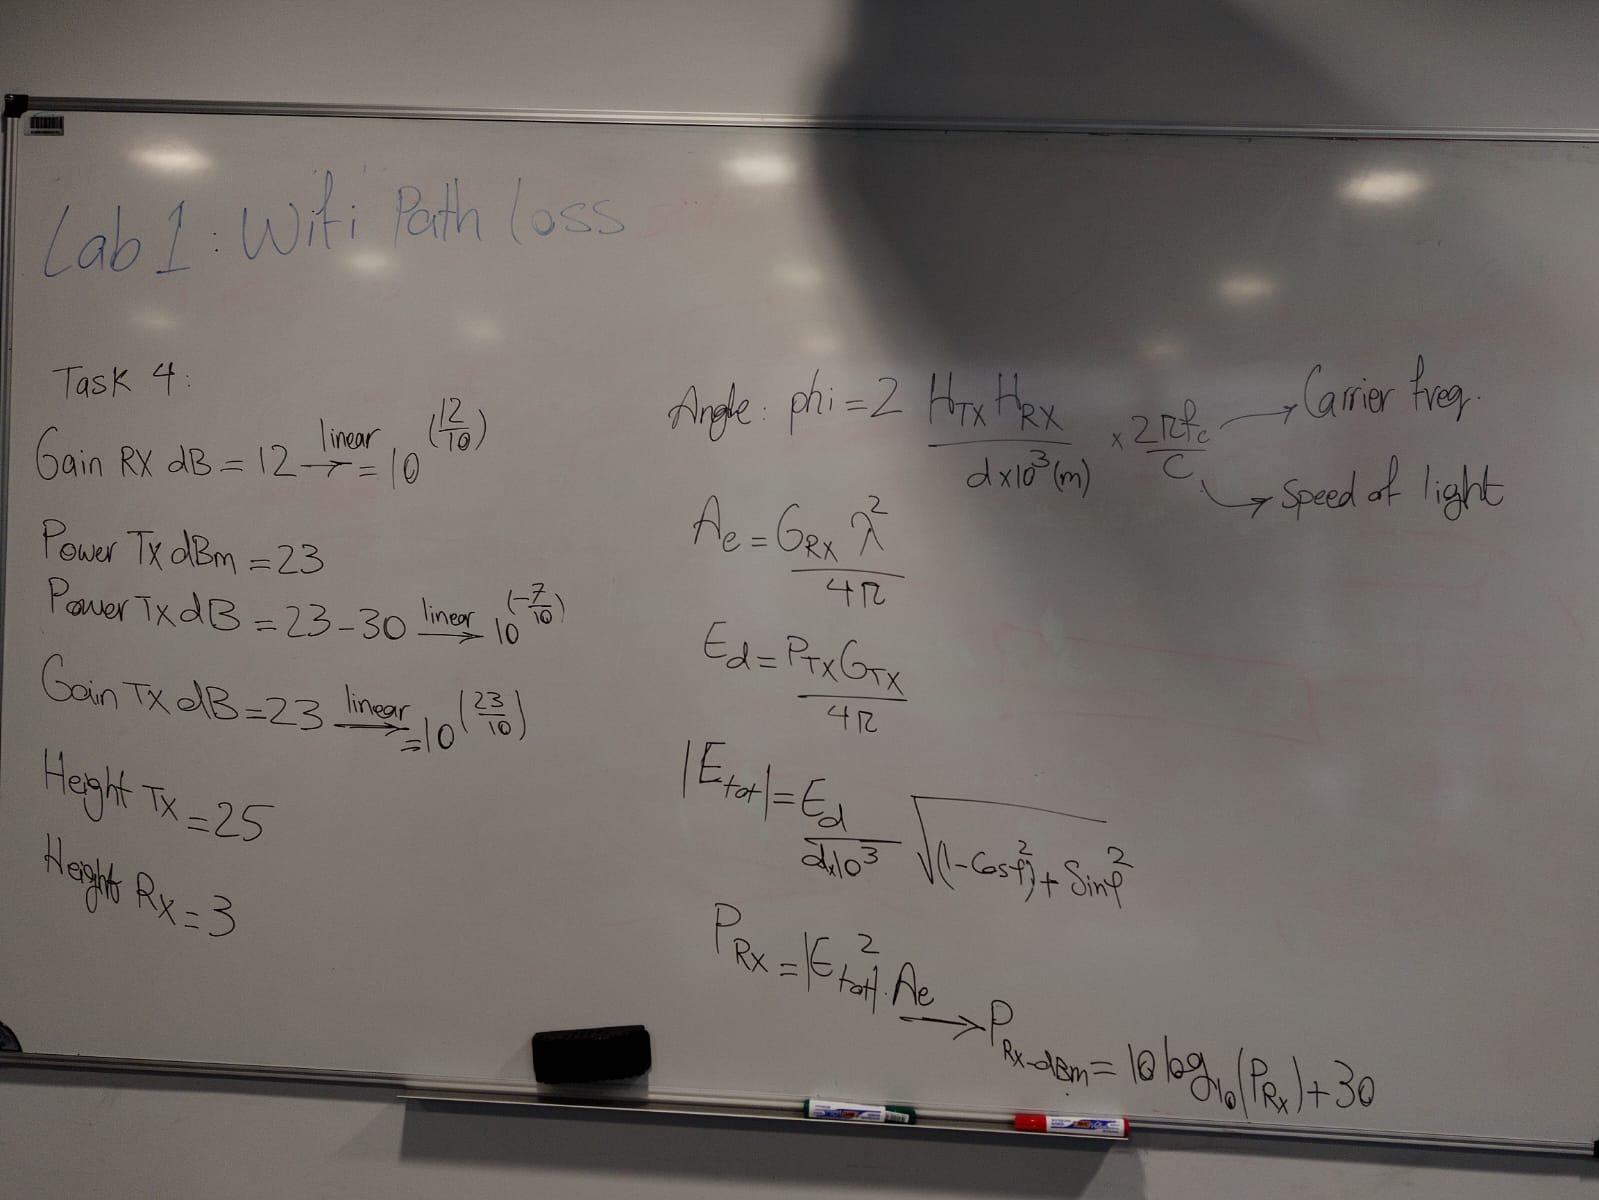 Lab 1: Wifi Path Loss
Task 4:
Gain RX dB = 12 linear → = 10^(12/10)
Power Tx dBm = 23
Power Tx dB = 23-30 linear → 10^(-7/10)
Gain Tx dB = 23 linear → = 10^(23/10)
Height Tx = 25
Height Rx = 3
Angle: phi = 2 HTX HRX / d×10³(m) × 2πfc / C → Carrier freq.
→ Speed of light
Ae = GRX λ² / 4π
Ed = PTX GTX / 4π
|Etot| = Ed / d×10³ √(1-Cosφ)² + Sinφ²
PRx = |Etot|² . Ae → PRx-dBm = 10 log₁₀(PRx) + 30